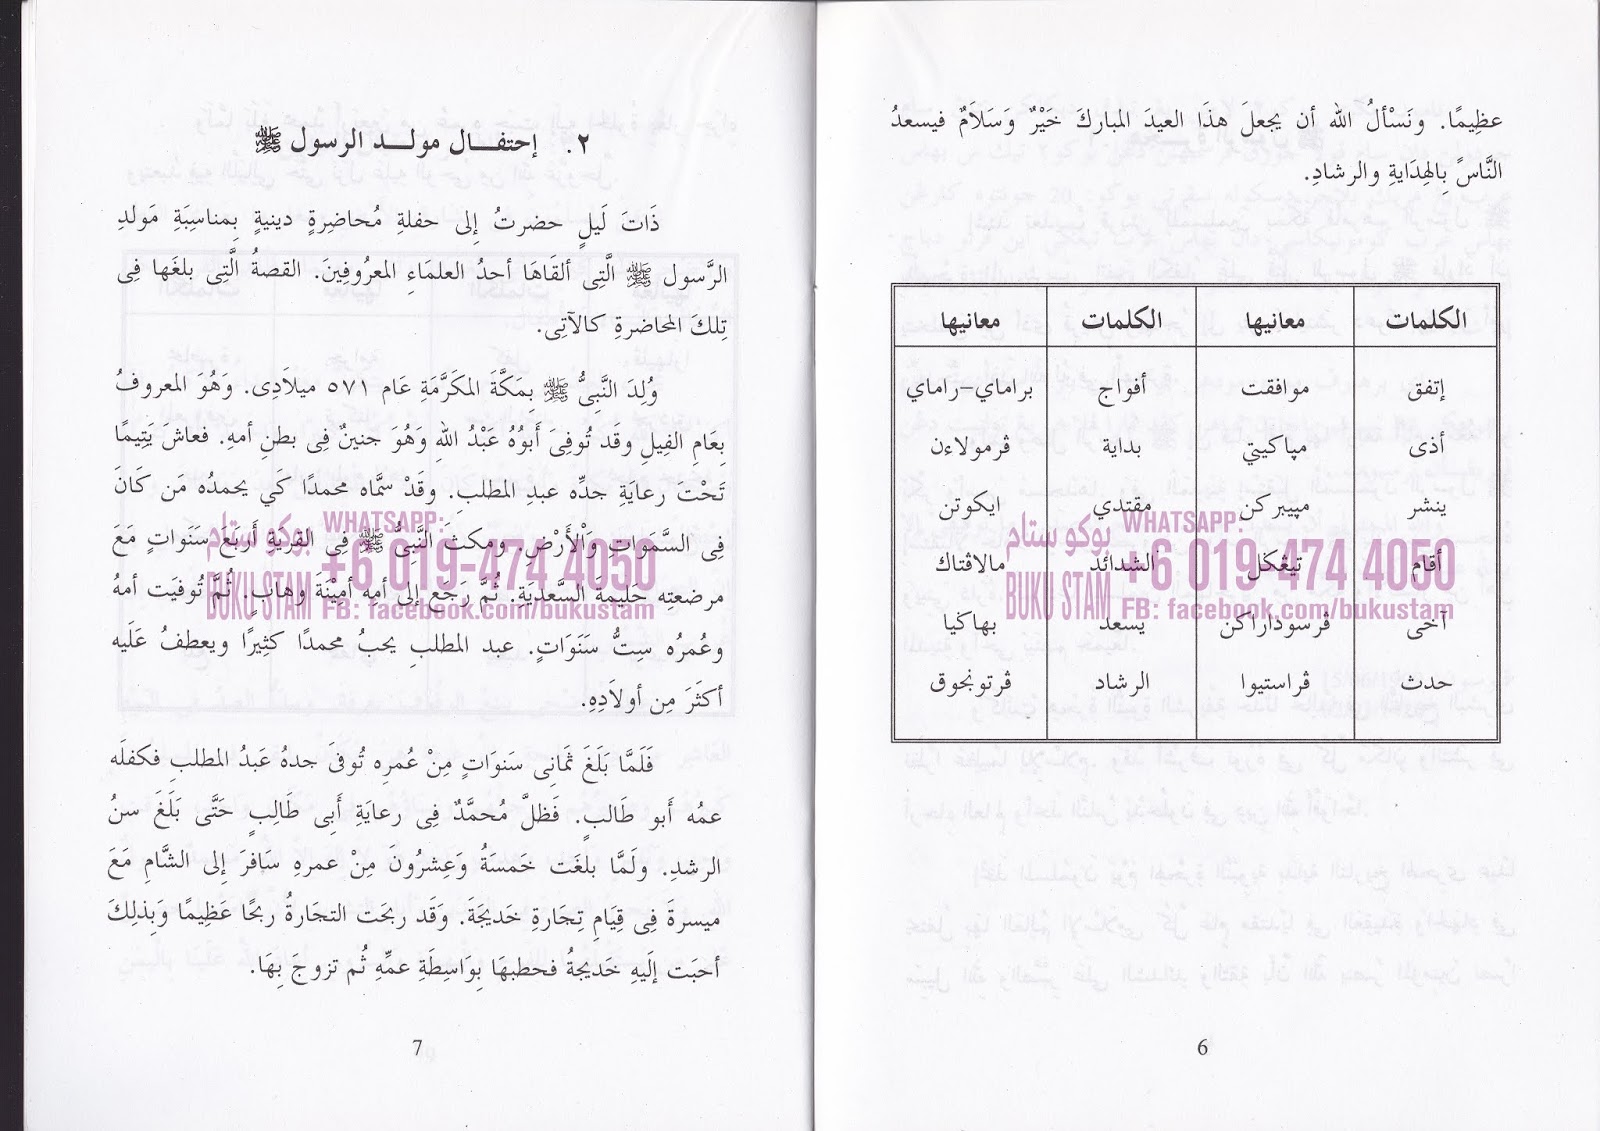 عظِيمًا. ونَسْألُ الله أن يجعلَ هذَا العيدَ المباركَ خَيْرٌ وَسَلَامٌ فيسعدُ
النَّاسً بِالهِدَايةِ والرشادِ.
الكلمات معانيها الكلمات معانيها
إتفق موافقت أفواج براماي–راماي
أذى مپاكيتي بداية ڤرمولاءن
ينشر مپيبركن مقتدي ايكوتن
أقام تيڠكل الشدائد مالاڤتاك
آخى ڤرسوداراكن يسعد بهاكيا
حدث ڤراستيوا الرشاد ڤرتونجوق
بوكو ستام
BUKU STAM
WHATSAPP:
+6 019-474 4050
FB: facebook.com/bukustam
6
٢. إحتفــال مولــد الرسول ﷺ
ذَاتَ لَيلٍ حضرتُ إِلى حفلةِ مُحاضِرةٍ دينيةٍ بِمناسِبَةِ مَولدِ
الرَّسول ﷺ الَّتِى ألقَاهَا أحدُ العلمَاءِ المعرُوفِينَ. القصةُ الَّتِى بلغَها فِى
تِلكَ المحاضرةِ كالآتِى.
وُلِدَ النَّبِىُّ ﷺ بِمَكَّةَ المكَرَّمَةِ عَام ٥٧١ ميلَادِى. وَهُوَ المعروفُ
بِعَامِ الفِيلِ وقَد تُوفِىَ أَبوُهُ عَبْدُ اللهِ وَهُوَ جنينٌ فِى بطنِ أمهِ. فعاشَ يَتِيمًا
تَحْتَ رعايَةِ جدِّه عبدِ المطلبِ. وقَدْ سمَّاه محمدًا كَي يحمدُه مَن كَانَ
فِى السَّمَواتِ وَالْأَرْضِ. ومكثَ النَّبِىُّ ﷺ فِى القريَةِ أَربَعَ سَنَواتٍ مَعَ
مرضعتِه حَلِيمَةَ السَّعديَةِ. ثُمَّ رَجَعَ إلى أمِهِ أمِيْنَةَ وهابٍ. ثُمَّ تُوفيَت أمهُ
وعُمرُه سِتُّ سَنَوَاتٍ. عبد المطلبِ يحبُ محمدًا كثِيرًا ويعطفُ عَلَيه
أكثَرَ مِن أولَادِهِ.
فَلَمَّا بَلَغَ ثَمانِى سَنوَاتٍ مِنْ عُمرِه تُوفىَ جدهُ عَبدُ المطلبِ فكفلَه
عمُه أَبو طَالبٍ. فَظلَّ مُحمَّدٌ فِى رعايَةِ أَبِى طَالِبٍ حَتَّى بَلَغَ سنُ
الرشدِ. ولَمَّا بلغَت خَمسَةُ وَعِشرُونَ مِنْ عمرهِ سَافرَ إِلى الشَّامِ مَعَ
ميسرةَ فِى قِيَامِ تِجَارةِ خَديجَةَ. وَقَد ربحَت التجَارةُ ربحًا عَظِيمًا وَبِذلِكَ
أحبَت إلَيهِ خَديجةُ فحطبهَا بِوَاسِطَةِ عمِّهِ ثُم تزوجَ بِهَا.
بوكو ستام
BUKU STAM
WHATSAPP:
+6 019-474 4050
FB: facebook.com/bukustam
7